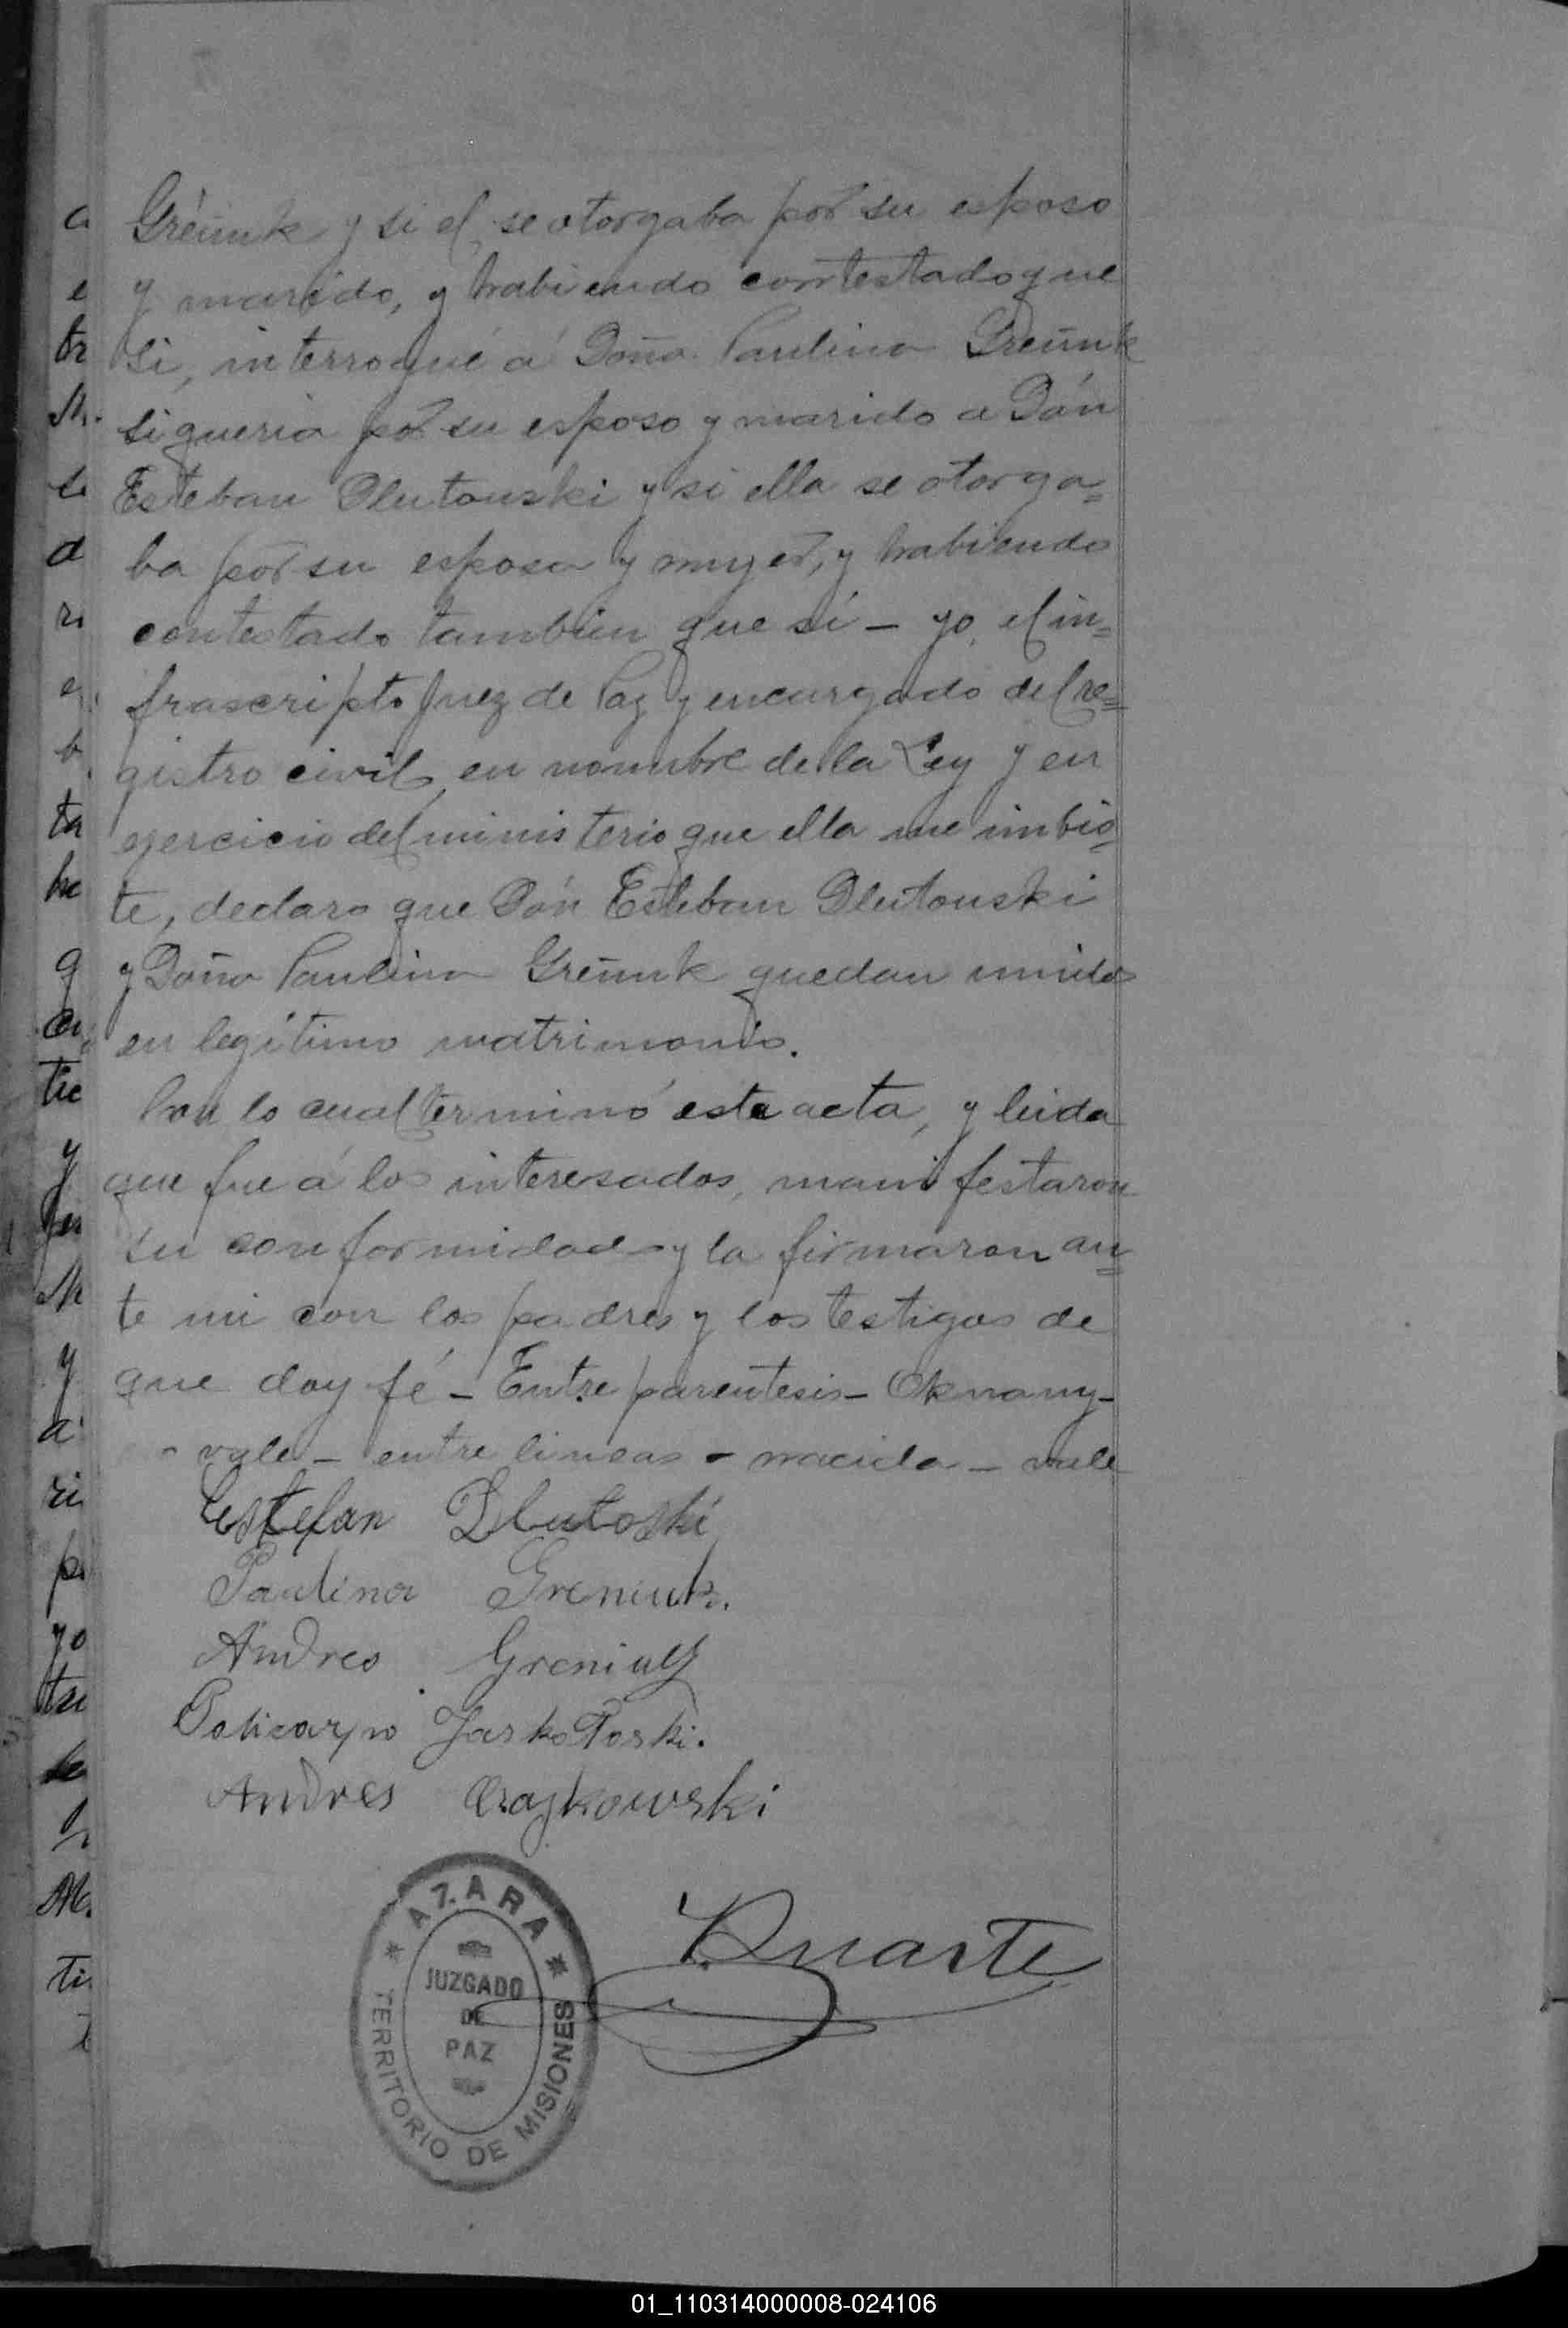 Greñuk y si el se otorgaba por su esposo
y marido, y habiendo contestado que
si, interrogué á Doña Paulina Greñuk
si queria por su esposo y marido a Dón
Esteban Dlutouski y si ella se otorga=
ba por su esposa y mujer, y habiendo
contestado tambien que sí – yo el in=
frascripto Juez de Paz y encargado del re=
gistro civil, en nombre de la Ley y en
ejercicio del ministerio que ella me imbis
te, declaro que Dón Esteban Dlutouski
y Doña Paulina Greñuk quedan unidos
en legitimo matrimonio.
Con lo cual terminó esta acta, y leida
que fue á los interesados, manifestaron
su conformidad y la firmaron an=
te mi con los padres y los testigos de
que doy fé – Entre parentesis – Oknany –
vale – entre lineas – nacida – vale
Estefan Dlutoski
Paulina Greniuk.
Andres Greniuk
Policarpo
Andres Czajkowski
Duarte
* AZARA *
JUZGADO
DE
PAZ
TERRITORIO DE MISIONES
a
e
tr
d
ri
e
b
ta
he
q
tie
y
y
a
ri
p
yo
ti
01_110314000008-024106